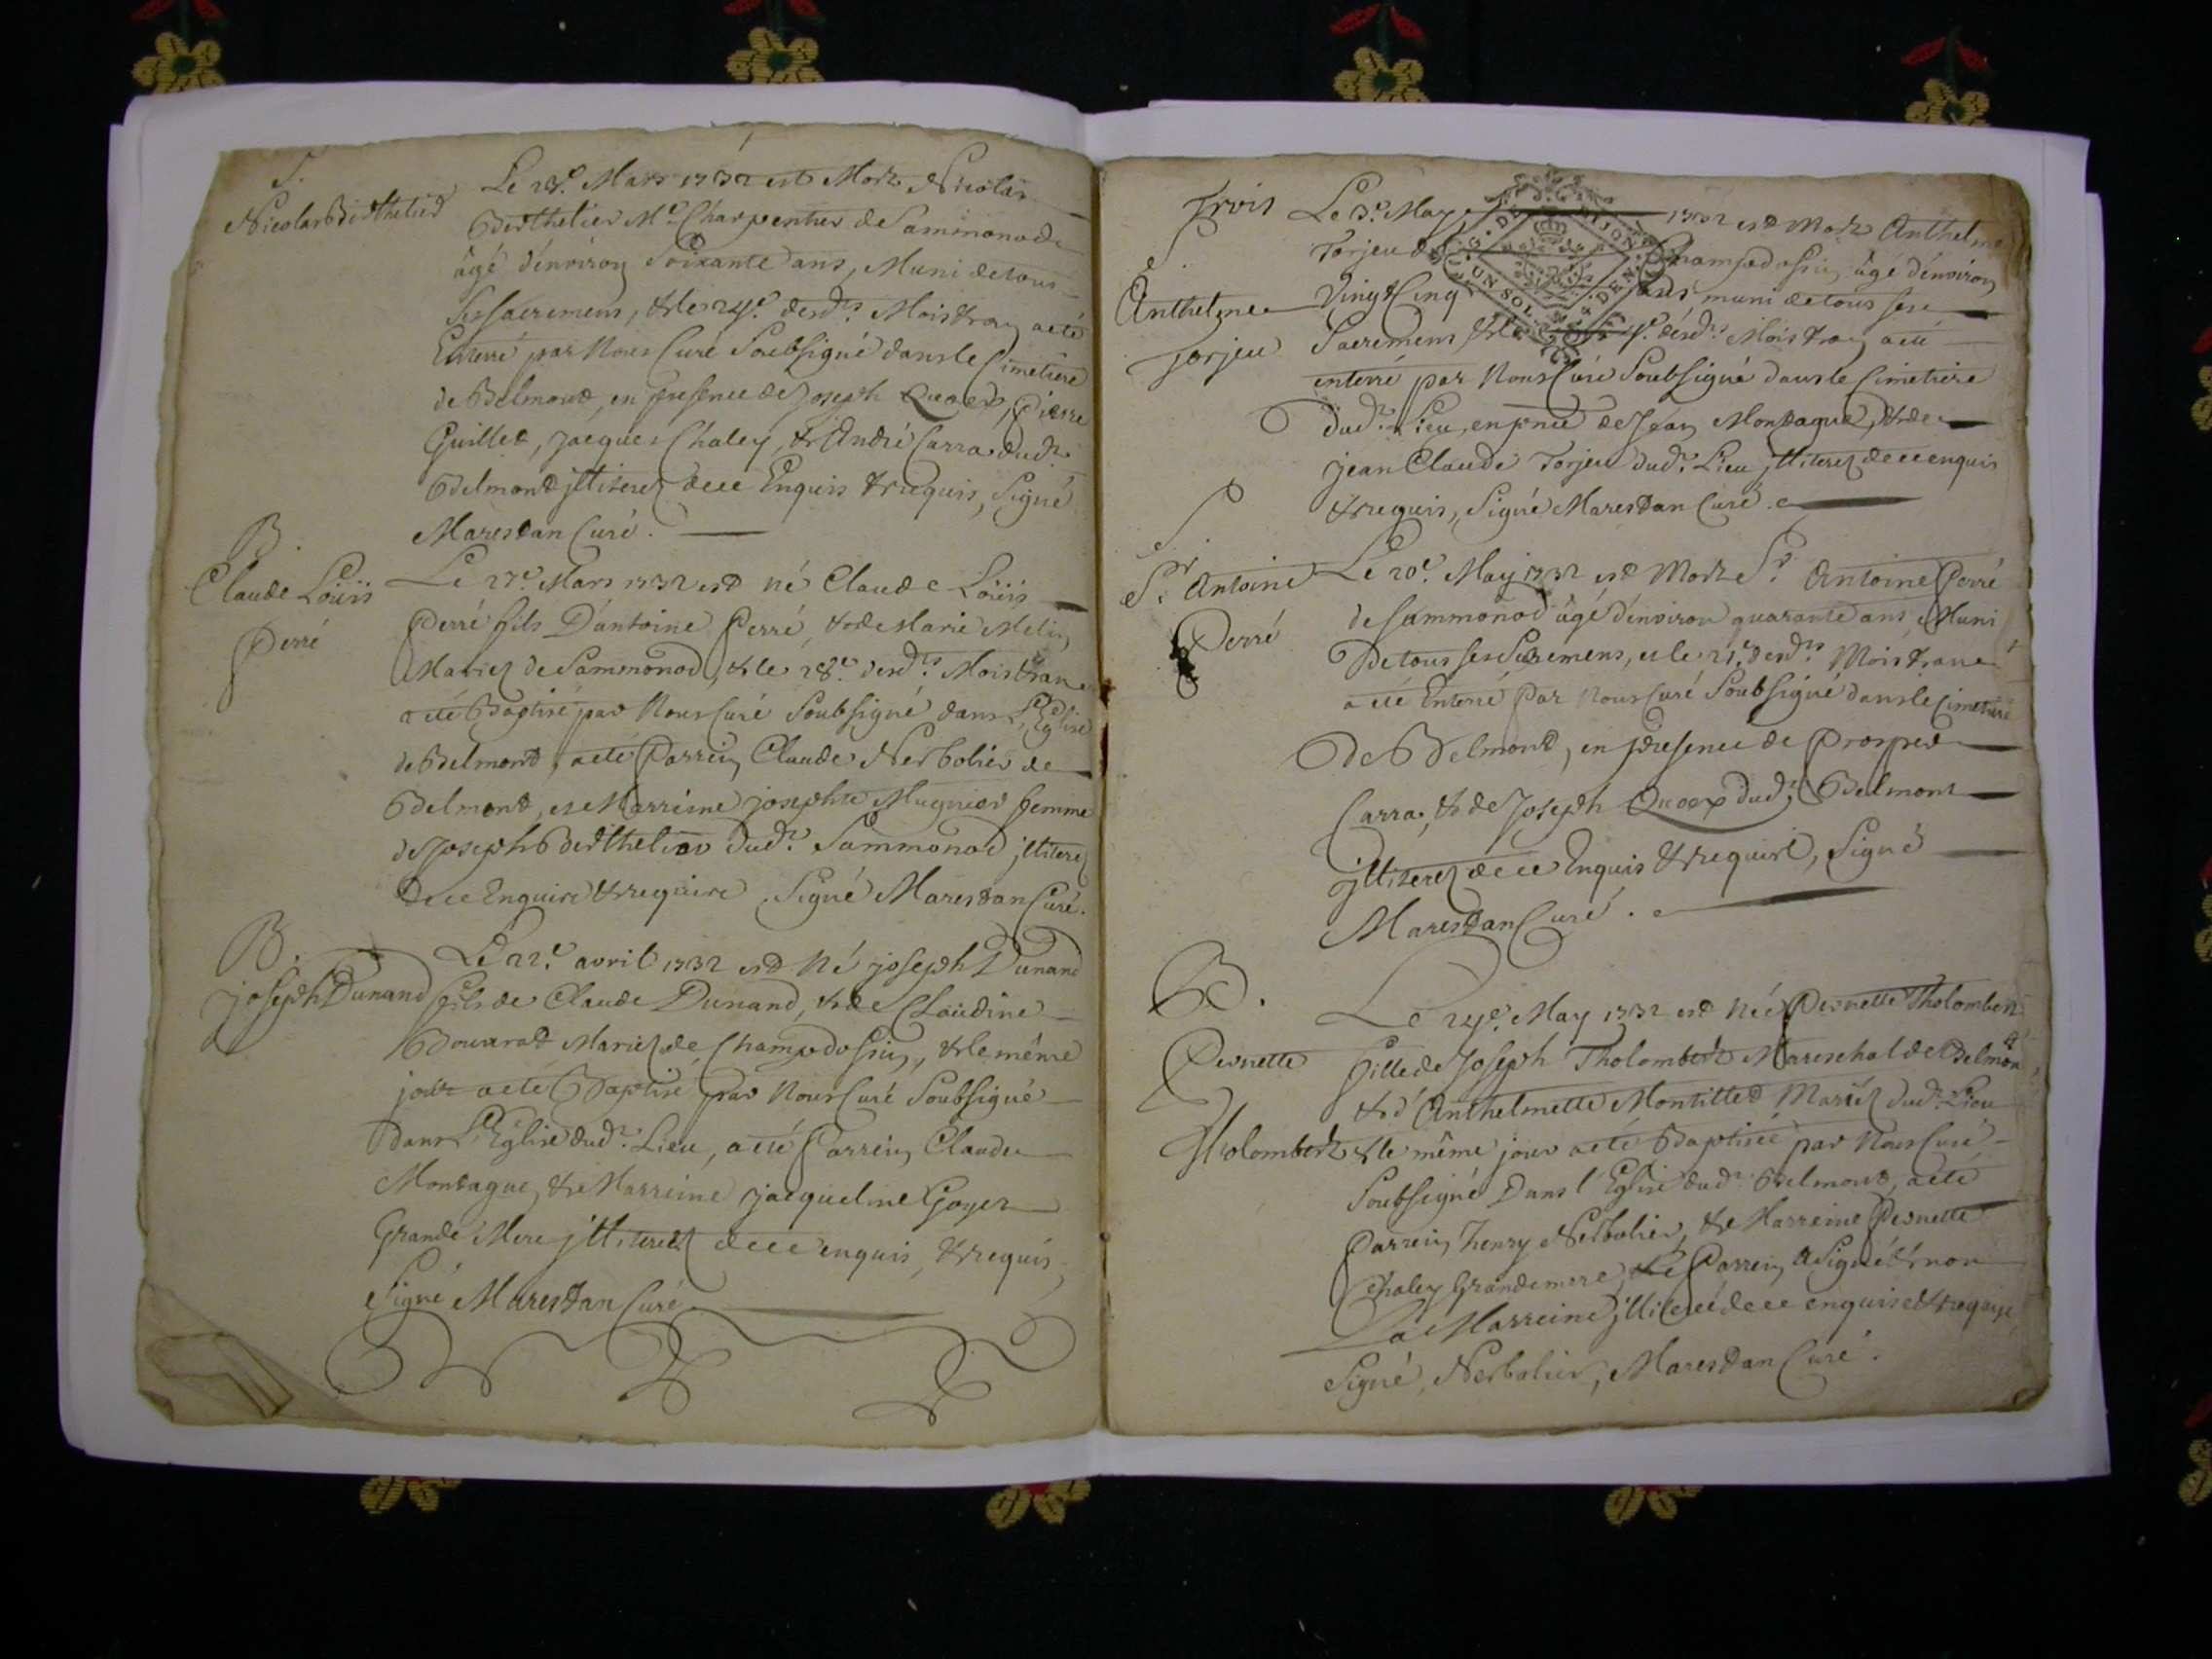 S.
Nicolas Berthelier
Le 23e. Mars 1732 est Mort Nicolas
Berthelier Me. Charpentier de Sammonod
âgé d'environ Soixante ans, Muni de tous
Ses Sacremens, & le 24e. desdts. Mois & an a eté
Enterré par Nous Curé Soubsigné dans le Cimetiere
de Belmont, en presence de Joseph Quoex, Pierre
Guillet, Jacques Chaley, & André Carra dudt.
Belmont jlliterez de ce Enquis & requis, Signé
Marestan Curé.
B.
Claude Loüis
Perré
Le 27e. Mars 1732 est né Claude Loüis
Perré fils D'antoine Perré, & de Marie Melin
Mariez de Sammonod, & le 28e. desdts. Mois & an
a eté Baptisé par Nous Curé Soubsigné dans L'Eglise
de Belmont, a eté Parrein Claude Nerbolier de
Belmont, et Marreine josephte Mugnier femme
de Joseph Berthelier dudt. Sammonod jlliterez
de ce Enquis & requis. Signé Marestan Curé.
B.
joseph Dunand
Le 22e. avril 1732 est Né joseph Dunand
fils de Claude Dunand, & de Claudine
Bouvrat Mariez de Champdossin, & le même
jour a eté Baptisé par Nous Curé Soubsigné
dans L'Eglise dudt. Lieu, a eté Parrein Claude
Montague, & Marreine jacqueline Goyet
Grande Mere jlliterez de ce enquis, & requis,
Signé Marestan Curé.
Trois
S.
Anthelme
Torjeu
Le 3e. May 1732 est Mort Anthelme
Torjeu de Champdossin, âgé d'environ
Vingt Cinq ans muni de tous ses
Sacremens & le 4e. desdts. Mois & an a eté
enterré par Nous Curé Soubsigné dans le Cimetiere
dudt. Lieu, en pnce de Jean Montague, & de
jean Claude Torjeu dudt. Lieu jlliterez de ce enquis
& requis, Signé Marestan Curé.
S.
Sr. Antoine
Perré
Le 20e. May 1732 est Mort Sr. Antoine Perré
de Sammonod âgé d'environ quarante ans, Muni
De tous ses Sacremens, et le 21e. desdts. Mois & an
a eté Enterré Par Nous Curé Soubsigné dans le Cimetiere
De Belmont, en presence de Prosper
Carra, & de Joseph Quoex dudt. Belmont
jlliterez de ce Enquis & requis, Signé
Marestan Curé.
B.
Pernette
Tholombert
Le 24e. May 1732 est Née Pernette Tholombert
fille de Joseph Tholombert Mareschal de Belmont
& d'Anthelmette Montillet Mariéz dudt. Lieu
& le même jour a eté Baptisée par Nous Curé
Soubsigné Dans l'Eglise dudt. Belmont, a eté
Parrein Henry Nerbolier, & Marreine Pernette
Chaley Grande mere, & le Parrein a Signé & non
La Marreine jlliterée de ce enquise & requise,
Signé, Nerbolier, Marestan Curé.